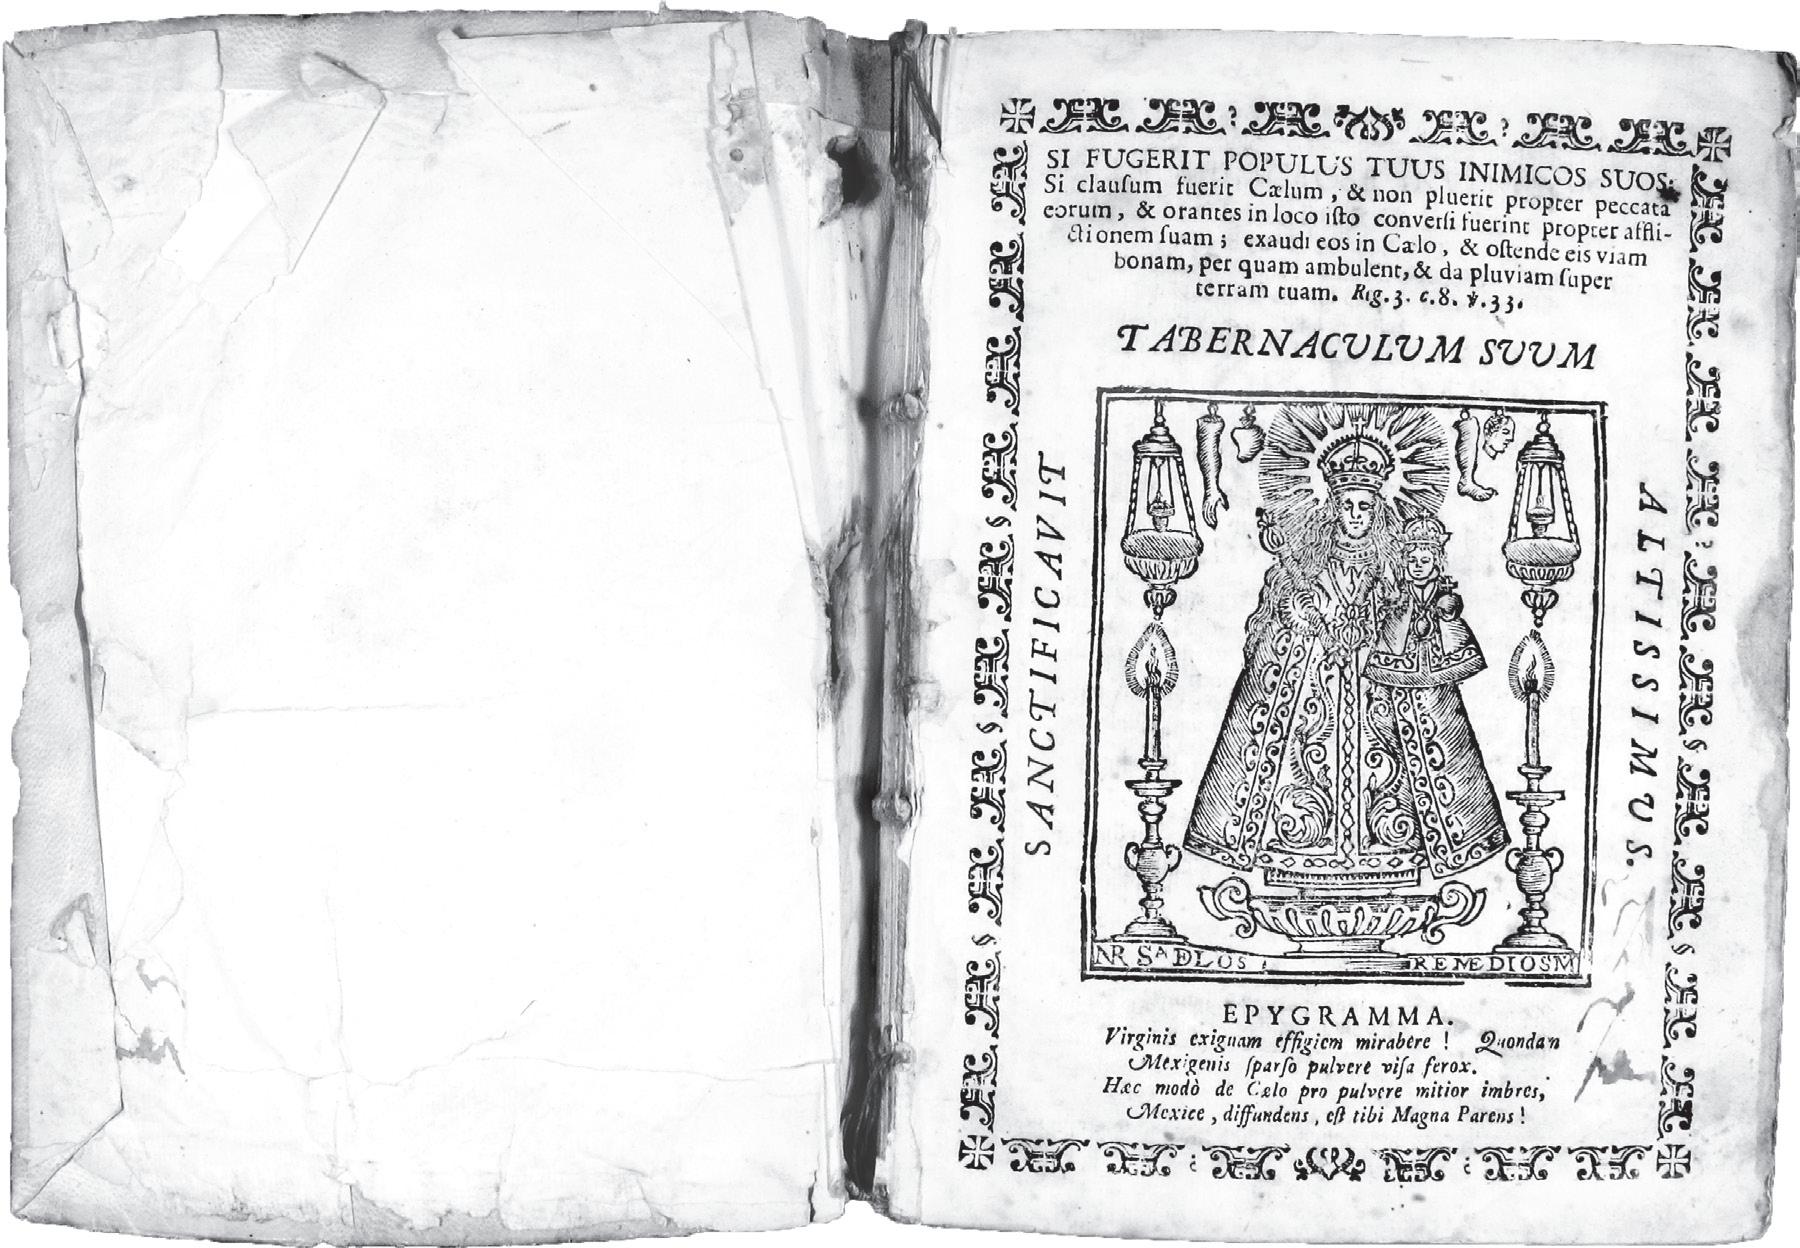 SI FUGERIT POPULUS TUUS INIMICOS SUOS:
Si clauſum fuerit Cælum, & non pluerit propter peccata
eorum, & orantes in loco iſto converſi fuerint propter affli-
ctionem ſuam; exaudi eos in Cælo, & oſtende eis viam
bonam, per quam ambulent, & da pluviam ſuper
terram tuam. Rig. 3. c. 8. ℣. 33.
TABERNACULUM SUUM
SANCTIFICAVIT
ALTISSIMUS.
NR Sᴬ DLOS REMEDIOSM
EPYGRAMMA.
Virginis exiguam effigiem mirabere! Quondam
Mexigenis ſparſo pulvere viſa ferox.
Hæc modò de Cælo pro pulvere mitior imbres,
Mexice, diffundens, eſt tibi Magna Parens!